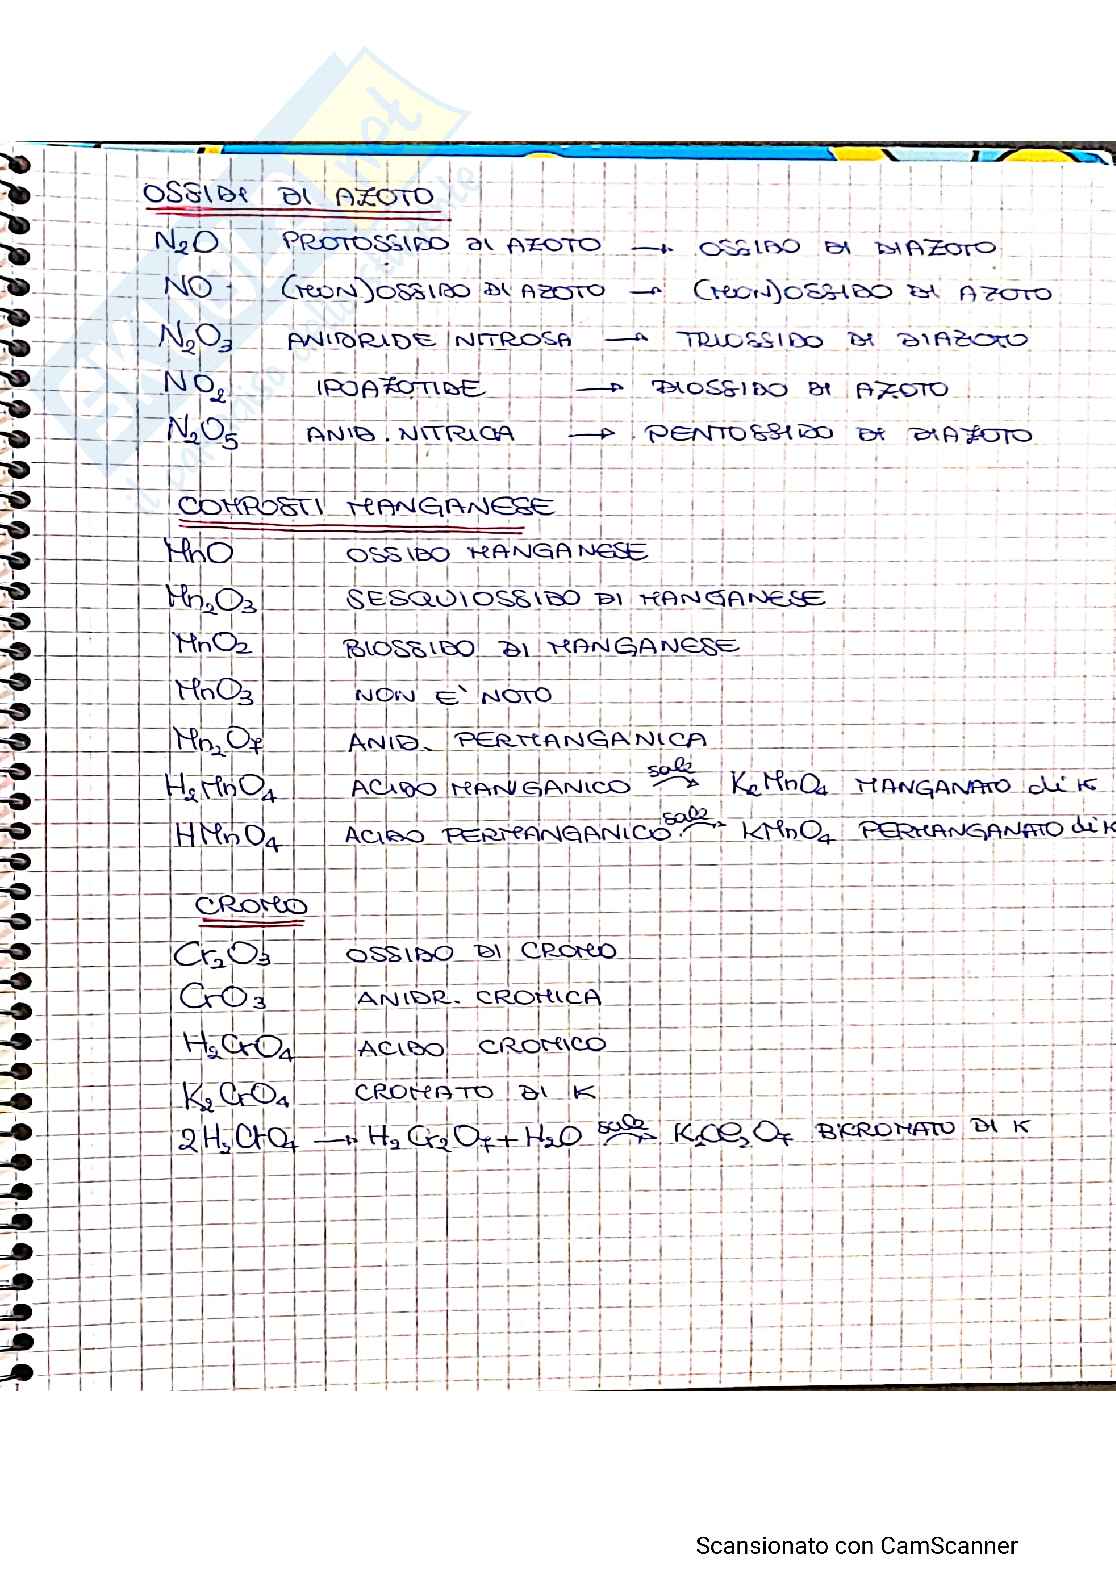 OSSIDI DI AZOTO
N₂O PROTOSSIDO DI AZOTO → OSSIDO DI DIAZOTO
NO (MON)OSSIDO DI AZOTO → (MON)OSSIDO DI AZOTO
N₂O₃ ANIDRIDE NITROSA → TRIOSSIDO DI DIAZOTO
NO₂ IPOAZOTIDE → DIOSSIDO DI AZOTO
N₂O₅ ANID. NITRICA → PENTOSSIDO DI DIAZOTO
COMPOSTI MANGANESE
MnO OSSIDO MANGANESE
Mn₂O₃ SESQUIOSSIDO DI MANGANESE
MnO₂ BIOSSIDO DI MANGANESE
MnO₃ NON E' NOTO
Mn₂O₇ ANID. PERMANGANICA
H₂MnO₄ ACIDO MANGANICO sale → K₂MnO₄ MANGANATO di K
HMnO₄ ACIDO PERMANGANICO sale → KMnO₄ PERMANGANATO di K
CROMO
Cr₂O₃ OSSIDO DI CROMO
CrO₃ ANIDR. CROMICA
H₂CrO₄ ACIDO CROMICO
K₂CrO₄ CROMATO DI K
2H₂CrO₄ → H₂Cr₂O₇ + H₂O sale → K₂Cr₂O₇ BICROMATO DI K
Scansionato con CamScanner